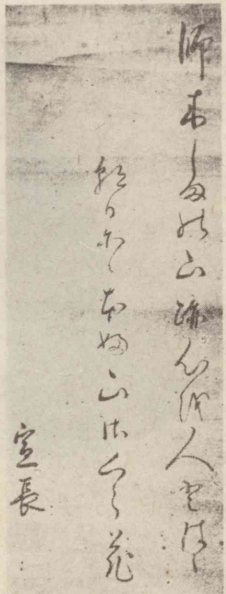 師木しまの山跡心を人とはゝ
朝日にゝほふ山さくら花
宣長